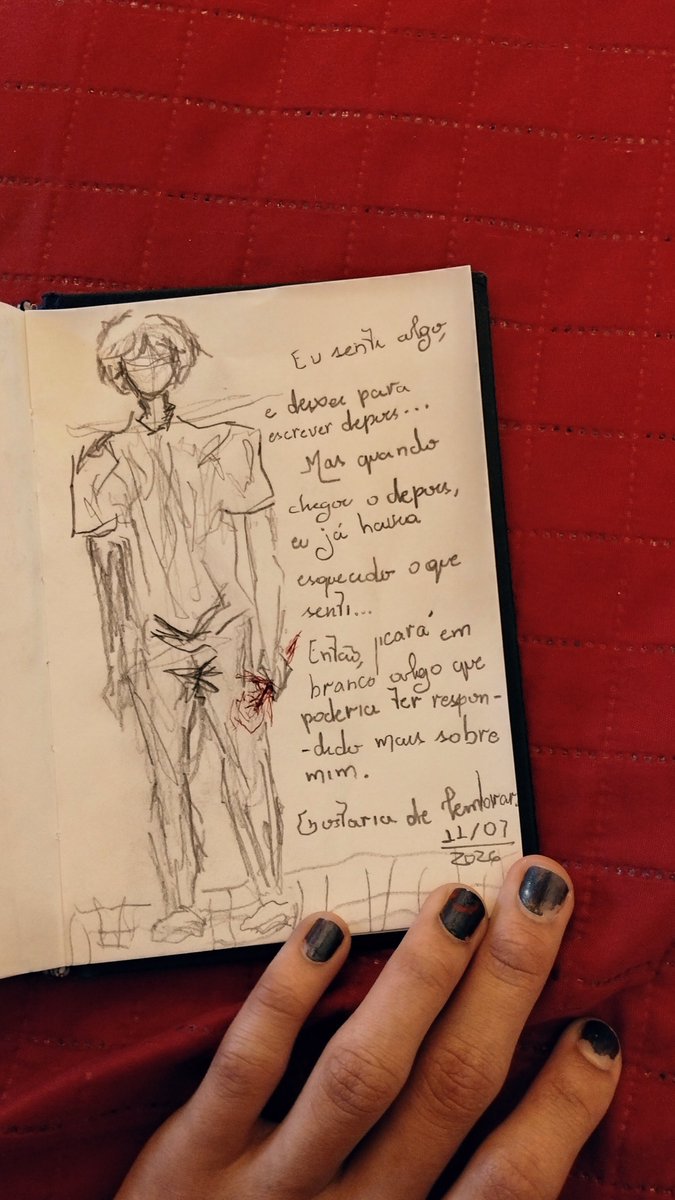 Eu senti algo,
e deixei para
escrever depois...
Mas quando
chegou o depois,
eu já havia
esquecido o que
senti...
Então, ficará em
branco algo que
poderia ter respon-
-dido mais sobre
mim.
Gostaria de lembrar.
11/07
2026